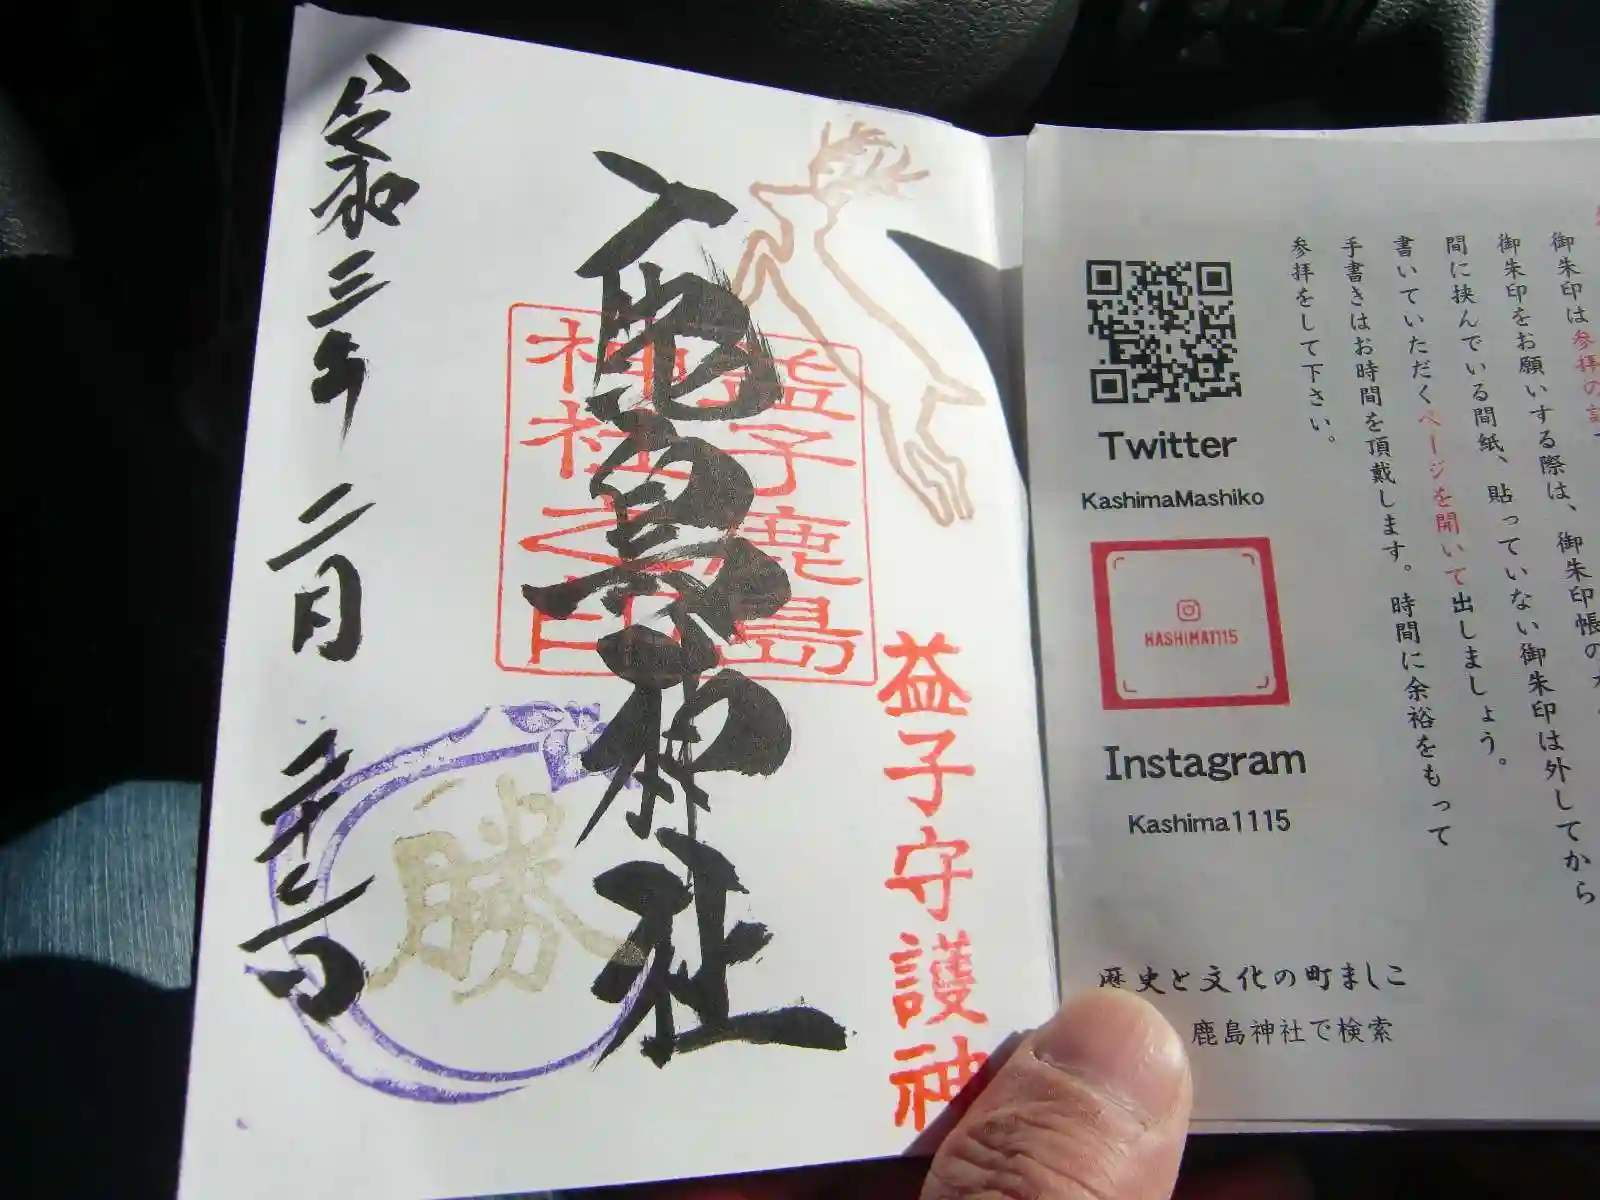 益子守護神
鹿島神社
益子鹿島
神社之印
勝
令和三年 二月 二十二日
御朱印は参拝の証
御朱印をお願いする際は、御朱印帳の
間に挟んでいる間紙、貼っていない御朱印は外してから
書いていただくページを開いて出しましょう。
手書きはお時間を頂戴します。時間に余裕をもって
参拝をして下さい。
Twitter
KashimaMashiko
KASHIMA1115
Instagram
Kashima1115
歴史と文化の町ましこ
鹿島神社で検索